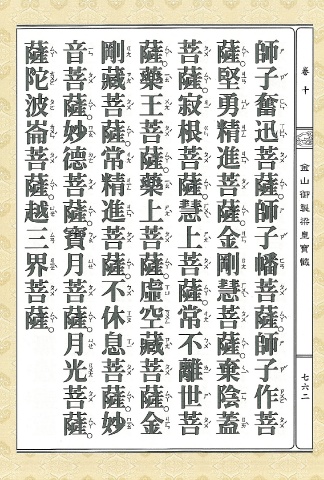 卷十
金山御製梁皇寶懺
七六二
師子奮迅菩薩。師子幡菩薩。師子作菩
薩。堅勇精進菩薩。金剛慧菩薩。棄陰蓋
菩薩。寂根菩薩。慧上菩薩。常不離世菩
薩。藥王菩薩。藥上菩薩。虛空藏菩薩。金
剛藏菩薩。常精進菩薩。不休息菩薩。妙
音菩薩。妙德菩薩。寶月菩薩。月光菩薩。
薩陀波崙菩薩。越三界菩薩。